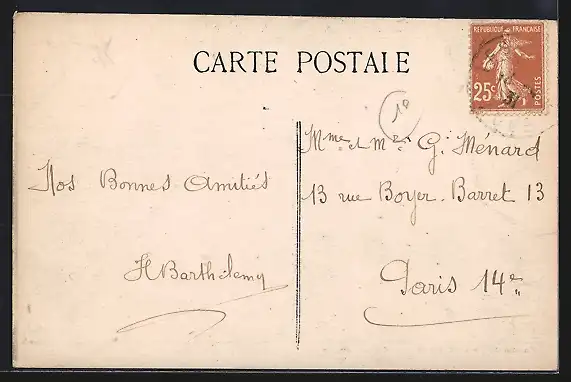 CARTE POSTALE
REPUBLIQUE FRANÇAISE
25c
POSTES
10
Nos Bonnes Amitiés
HBarthélemy
Mme et Mr G. Ménard
13 rue Boyer-Barret 13
Paris 14e